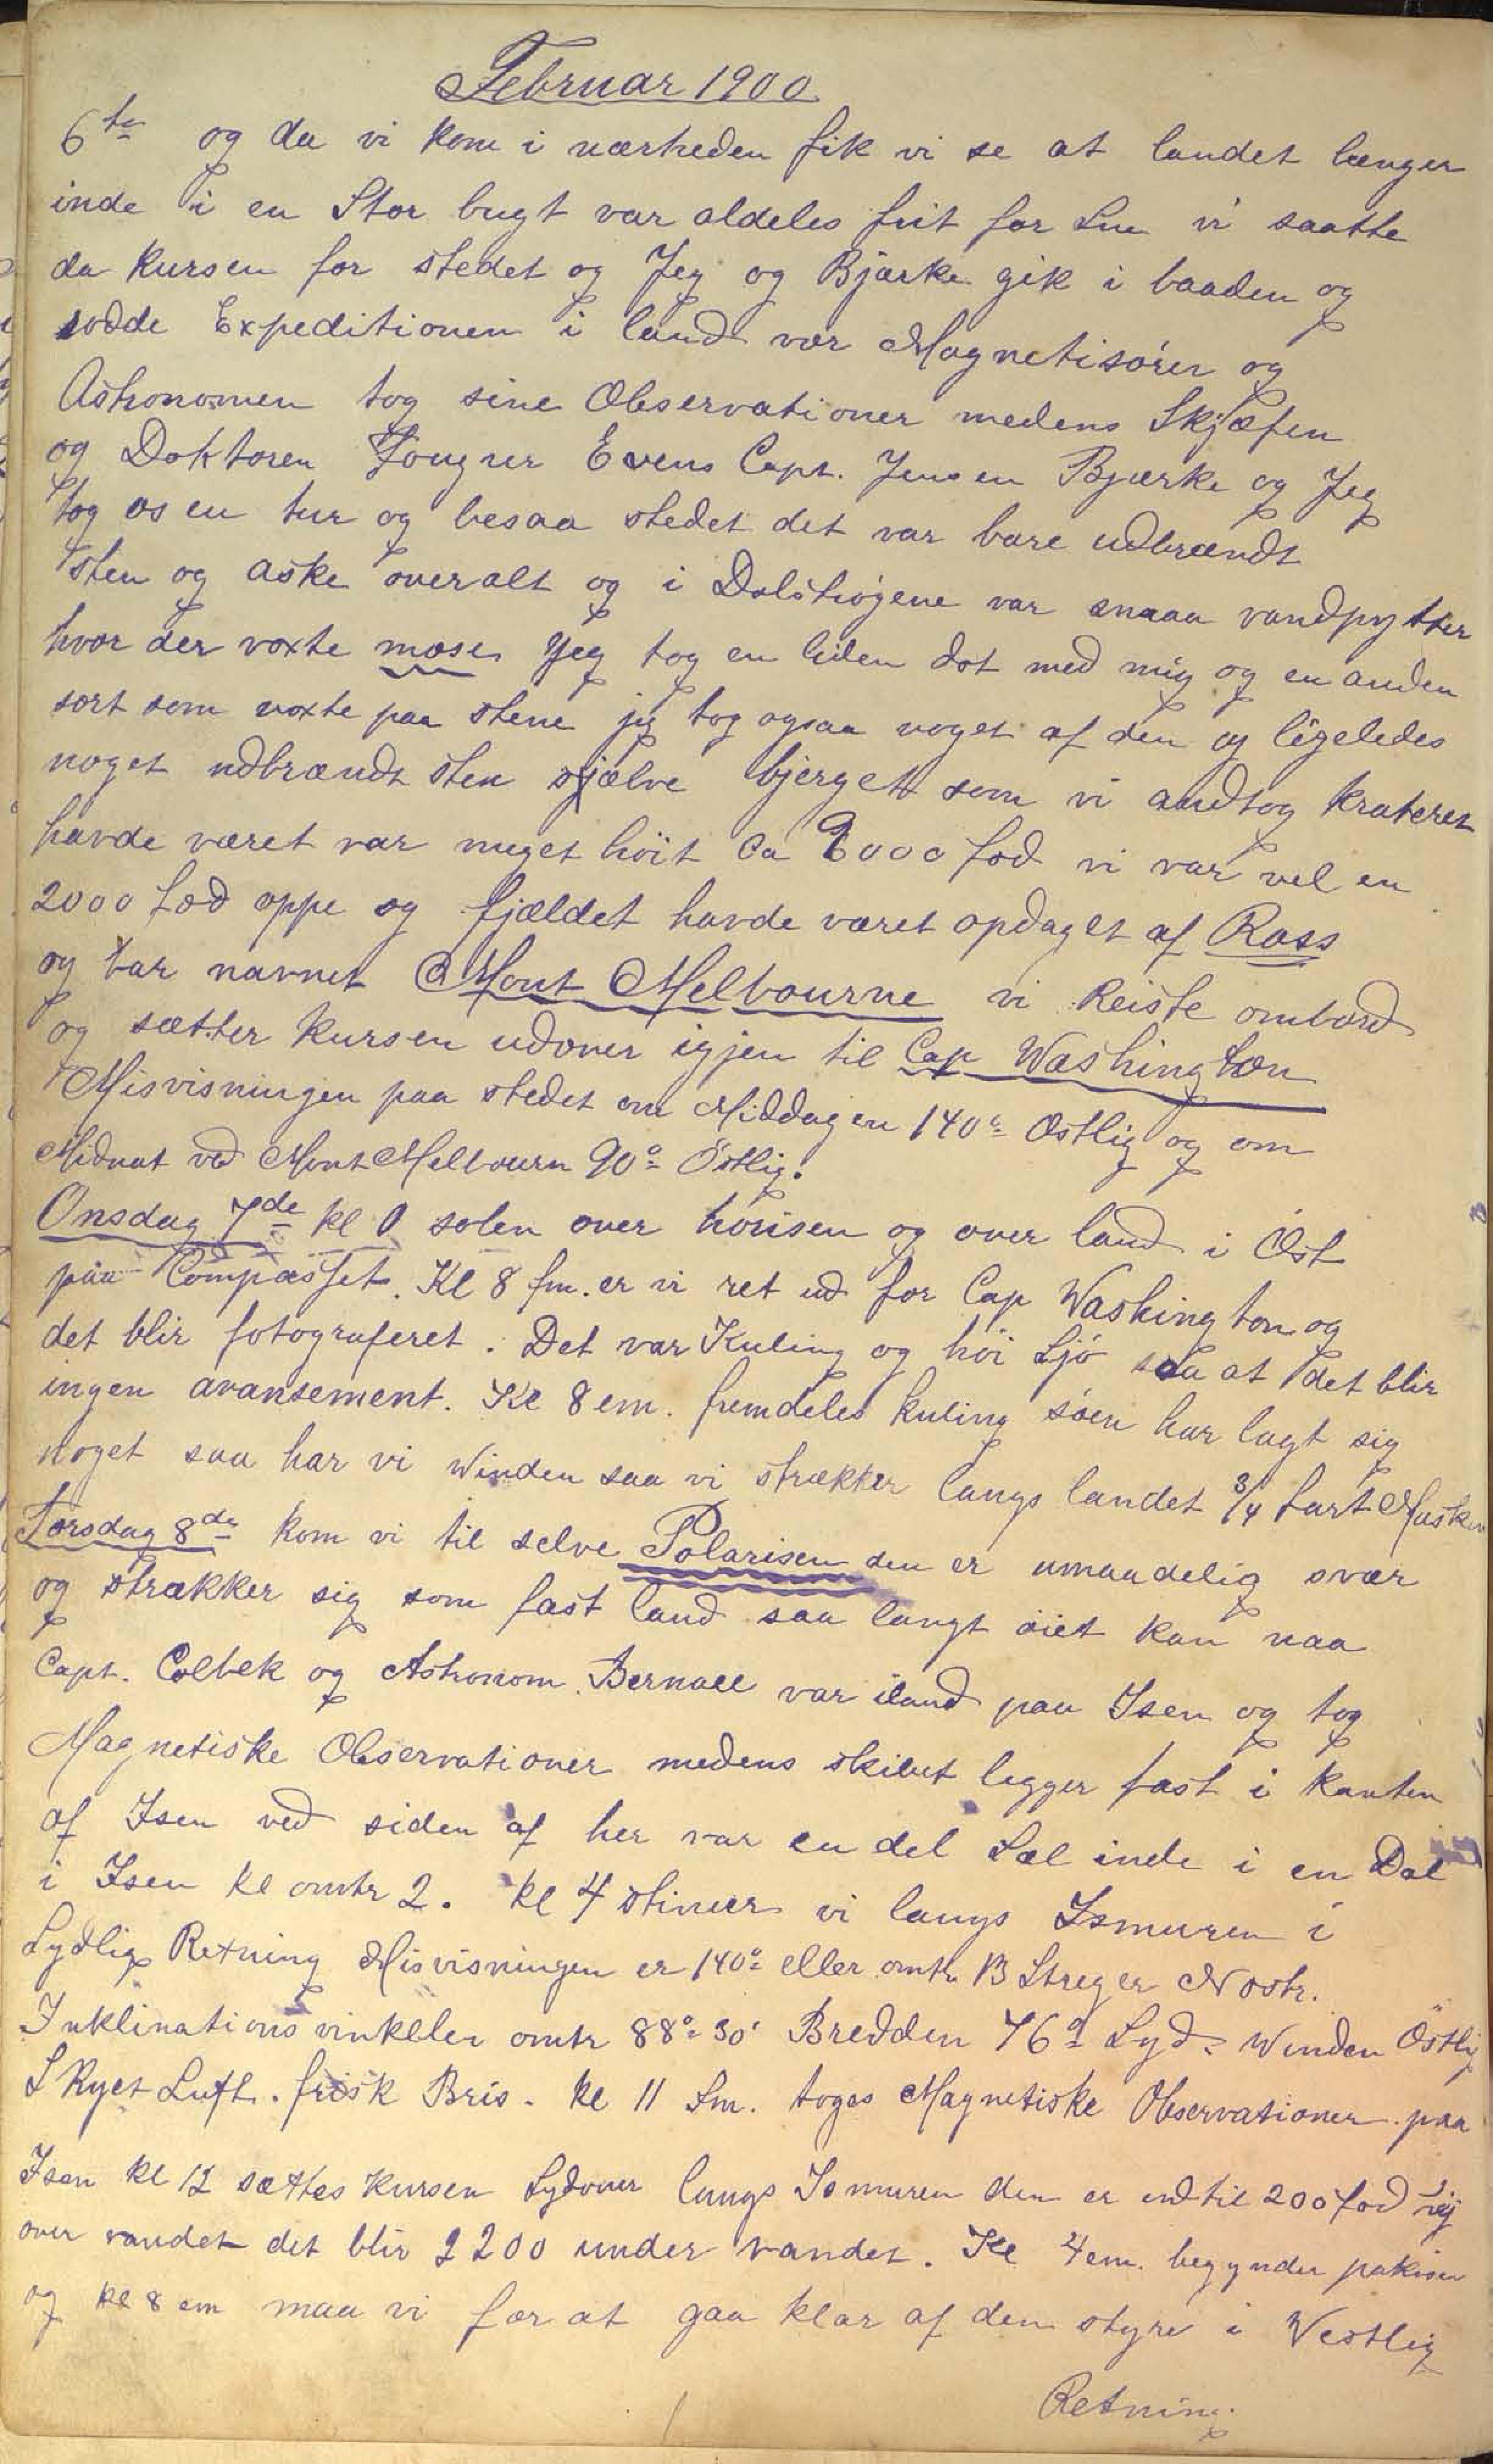 Februar 1900
6te og da vi kom i nærheden fik vi se at landet længer
inde i en Stor bugt var aldeles frit for Sne vi saatte
da kursen for stedet og Jeg og Bjærke gik i baaden og
rodde Expeditionen i land vor Magnetisører og
Astronomen tog sine Observationer medens Skjæfen
og Doktoren Fougner Evens Capt. Jensen Bjærke og Jeg
tog os en tur og besaa stedet det var bare udbrændt
sten og aske overalt og i Dalstrøgene var smaa vandpytter
hvor der voxte mose Jeg tog en liden dot med mig og en anden
sort som voxte paa stene jeg tog ogsaa noget af den og ligeledes
noget udbrændt sten sjælve bjerget som vi andtog krateret
havde været var meget høit Ca 9000 fod vi var vel en
2000 fod oppe og fjældet havde været opdaget af Ross
og bar navnet Mont Melbourne vi Reiste ombord
og sætter kursen udover igjen til Cap Washington
Misvisningen paa stedet om Middagen 140° Østlig og om
Midnat ved Mont Melbourn 90° Östlig.
Onsdag 7de kl 0 solen over horisen og over land i Øst
paa Compasset. Kl 8 fm. er vi ret ud for Cap Washington og
det blir fotograferet. Det var Kuling og høi Sjø saa at det blir
ingen avansement. Kl 8 em. fremdeles kuling søen har lagt sig
noget saa har vi Winden saa vi strækker langs landet 3/4 fart Maskin
Torsdag 8de kom vi til selve Polarisen den er umaadelig svær
og strækker sig som fast land saa langt øiet kan naa
Capt. Colbek og Astronom Bernall var iland paa Isen og tog
Magnetiske Observationer medens skibet legger fast i kanten
af Isen ved siden af her var en del Sæl inde i en Dal
i Isen kl omtr 2. kl 4 stimer vi langs Ismuren i
Sydlig Retning Misvisningen er 140° eller omtr 13 Streger N ostr.
Inklinations vinkelen omtr 88° 30' Bredden 76° Syd. Winden Östlig
Skyet Luft. frisk Bris. kl 11 fm. toges Magnetiske Observationer paa
Isen kl 12 sættes kursen Sydover langs Ismuren den er indtil 200 fod høj
over vandet det blir 2200 under vandet. Kl 4 em. begynder pakisen
og kl 8 em maa vi for at gaa klar af den styre i Vestlig
Retning.